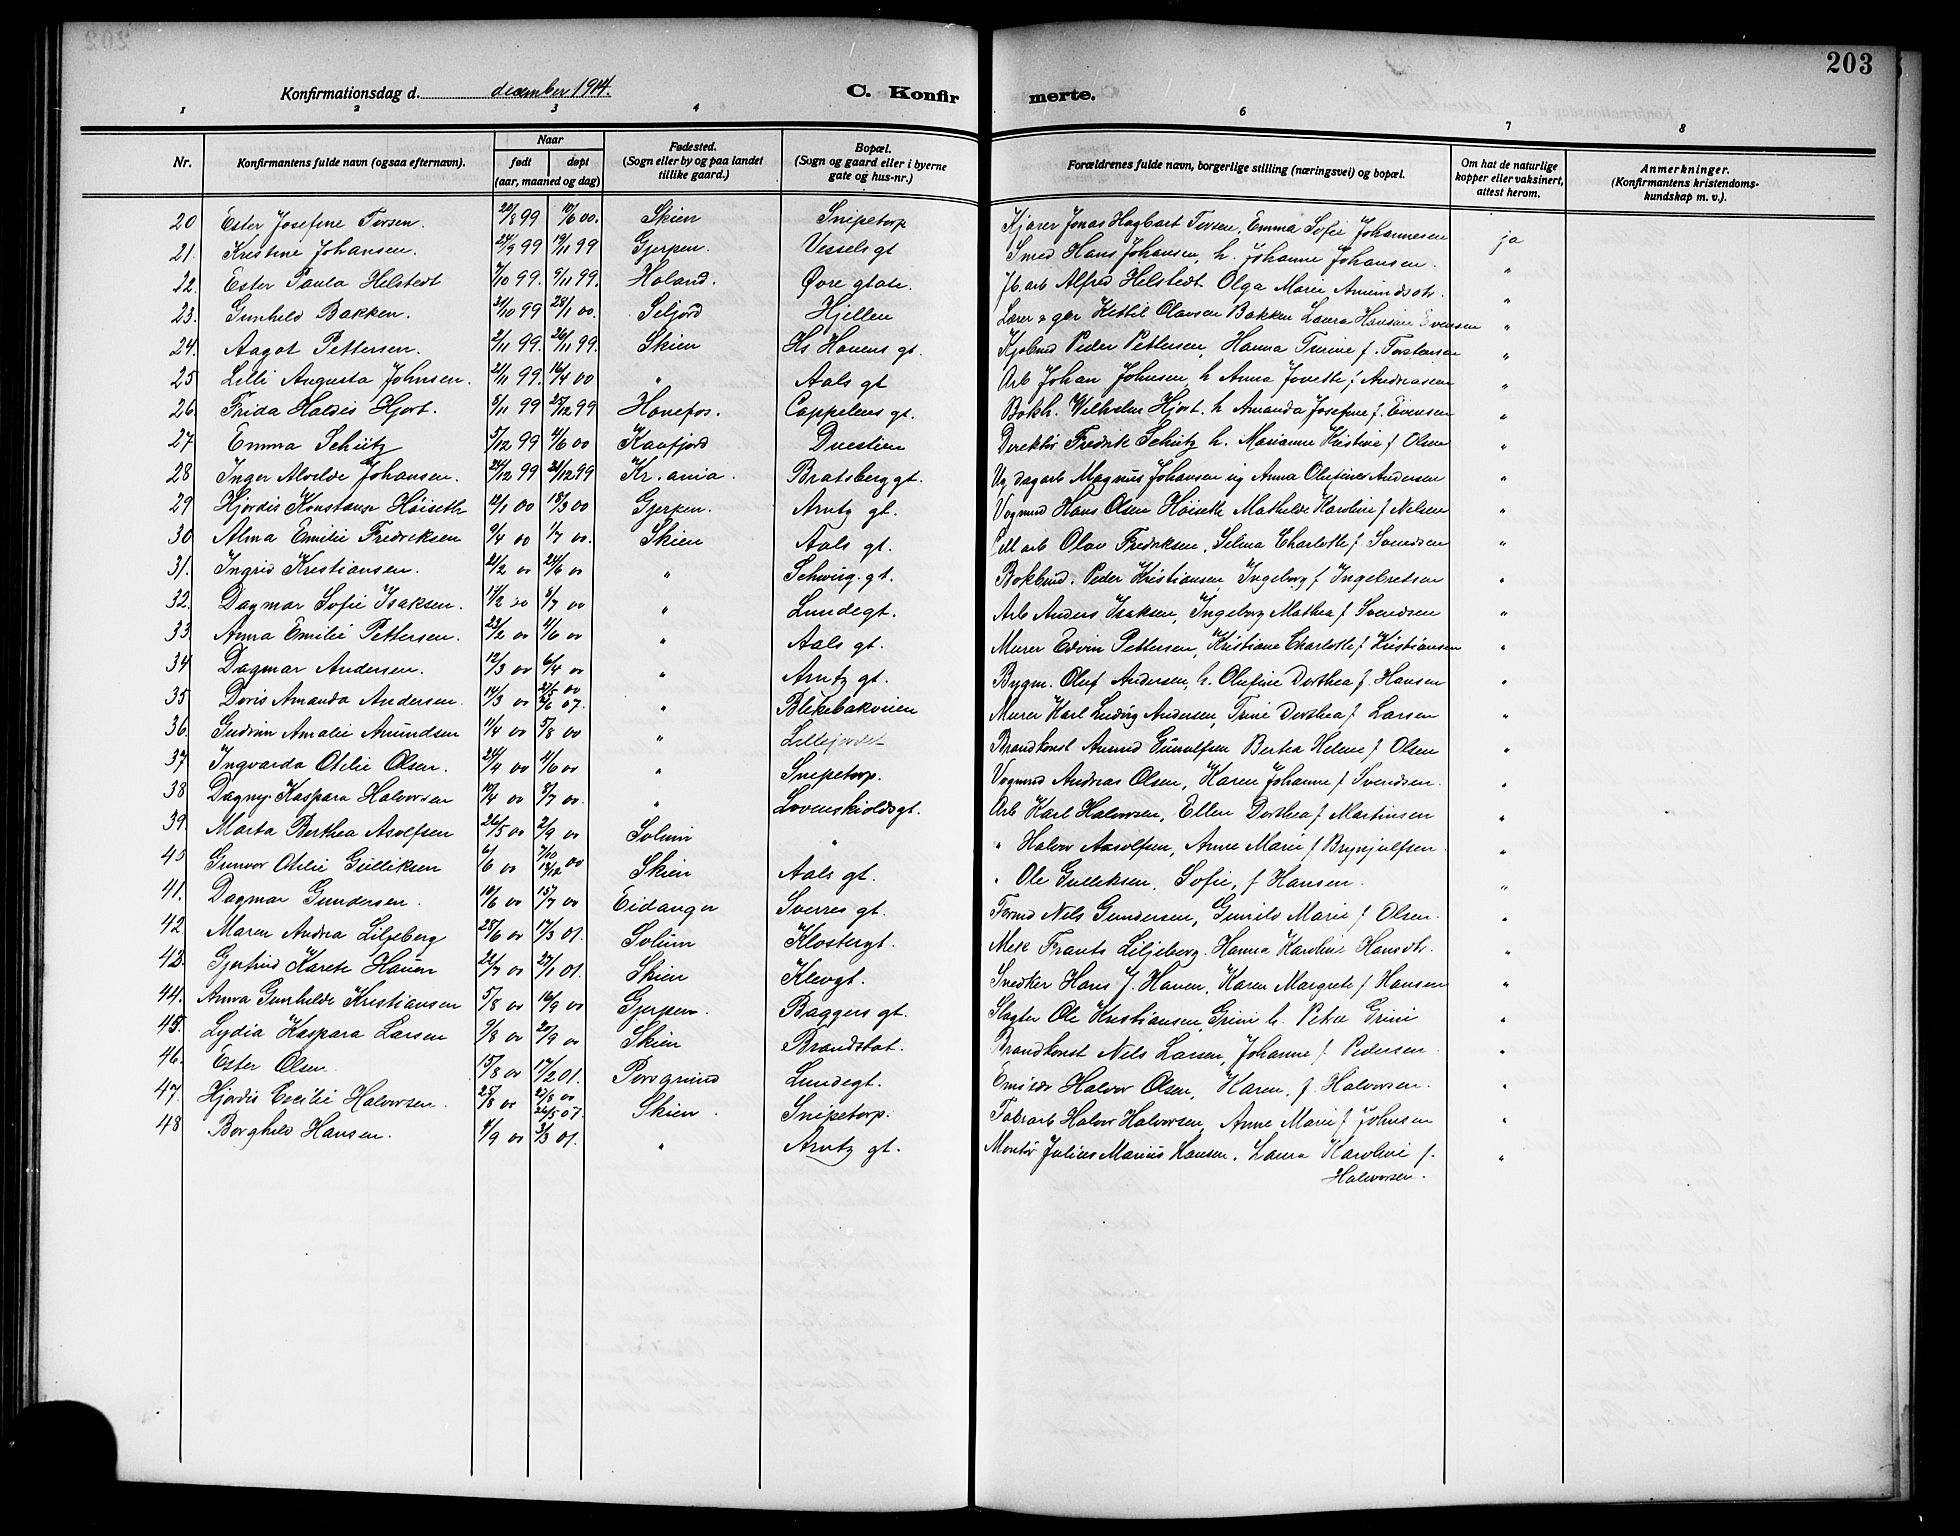 203
Konfirmationsdag d. december 1914. C. Konfir merte.
1 2 3 4 6 7 8
Nr. Konfirmantens fulde navn (ogsaa efternavn). Naar født døpt (aar, maaned og dag) Fødested. (Sogn eller by og paa landet tillike gaard.) Bopæl. (Sogn og gaard eller i byerne gate og hus-nr.) Forældrenes fulde navn, borgerlige stilling (næringsvei) og bopæl. Om hat de naturlige kopper eller vaksinert, attest herom. Anmerkninger. (Konfirmantens kristendomskundskap m. v.).
20 Ester Josefine Torsen. 20/8 99 10/6 00. Skien Snipetorp Kjører Jonas Hagbart Torsen, Emma Sofie Johannesen ja
21. Kristine Johansen. 24/9 99 19/11 99 Gjerpen. Vessels gt Smed Hans Johansen, h. Johanne Johansen. "
22. Ester Paula Helstedt 7/10 99. 5/11 99. Holand. Øvre gtate. Alfred Helstedt Olga Marie Amundsdtr. "
23. Gunhild Bakken. 31/10 99 28/1 00. Seljord Hjellen Lærer Kittil Olavsen Bakken Laura Hansine Evensen "
24. Aagot Pettersen. 2/11 99. 26/11 99. Skien Hs Havens gt. Peder Pettersen, Hanna Turine f. Torstensen "
25 Lilli Augusta Johnsen. 21/11 99. 16/4 00 " Aals gt Arb Johan Johnsen, h Anna Jovette f Andreasen "
26. Frida Haldis Hjort. 8/11 99 25/12 99 Hønefos. Cappelens gt. Bokh. Wilhelm Hjort. h Amanda Josefine f. Evensen "
27 Emma Schütz 5/12 99 4/6 00 Kaafjord Duestien Direktør Fredrik Schütz h. Marianne Kristine f Olsen "
28 Inger Alvilde Johansen. 24/12 99 21/12 99 Kr.ania. Bratsberg gt. Ug dagarb Magnus Johansen ug Anna Olufine Andersen "
29 Hjørdis Konstanse Høiseth 12/1 00 18/3 00 Gjerpen. Arntz gt. Vogmd Hans Olsen Høiseth Mathilde Karoline f Nelsen "
30 Alma Emilie Fredriksen 9/4 00 1/7 00. Skien Aals gt. arb Olav Fredriksen, Selma Charlotte f Svendsen "
31. Ingrid Kristiansen. 21/2 00 24/6 00 " Schwirg. gt. Bokbind. Peder Kristiansen Ingeborg f Ingebretsen "
32. Dagmar Sofie Isaksen. 17/2 00 8/7 00 " Lundegt. Arb Anders Isaksen, Ingeborg Mathea f Svendsen "
33. Anna Emilie Pettersen. 23/2 00 4/6 00 " Aals gt. Murer Edvin Pettersen, Kristiane Charlotte f Kristiansen "
34 Dagmar Andersen. 12/3 00 6/4 00 " Arntz gt. Bygm. Oluf Andersen, h. Olufine Dorthea f. Hansen "
35 Doris Amanda Andersen 14/3 00 27/5 00 07. " Blekebakveien Murer Karl Ludvig Andersen, Trine Dorthea f Larsen "
36. Gudrun Amalie Amundsen 11/4 00 5/8 00 " Lillejordet Brandkonst Amund Gunulfsen Bertea Helene f Olsen "
37 Ingvarda Otilie Olsen. 24/4 00 4/6 00 " Snipetorp. Vogmnd Andreas Olsen, Karen Johanne f Svendsen. "
38 Dagny Kaspara Halvorsen 10/4 00 8/7 00. " Løvenskioldsgt. Arb Karl Halvorsen, Ellen Dorthea f Martinsen "
39. Marta Berthea Asolfsen 26/5 00 2/9 00 Solum " " Halvor Aasolfsen, Anne Marie f Brynjulfsen "
40 Gunvor Otilie Gulliksen 6/6 00 7/10 00 Skien Aals gt. " Ole Gulliksen, Sofie, f Hansen. "
41. Dagmar Gundersen. 10/6 00 15/7 00 Eidanger Sverres gt. Formd Nels Gundersen, Gunild Marie f Olsen. "
42. Maren Andrea Liljeberg 28/6 00 17/3 01. Solum Klostergt. Mek Frants Liljeberg. Hanna Karoline Hansdtr. "
43. Gjertrud Karete Haven 22/7 00 27/1 01. Skien Klevgt. Snedker Hans J. Haven, Karen Margrete f Hansen "
44. Anna Gunhilde Kristiansen 5/8 00 16/9 00 Gjerpen. Baggers gt. Slagter Ole Kristiansen, Grini h. Petra Grini "
45. Lydia Kaspara Larsen 9/8 00 20/9 00 Skien Brandstat. Brandkonst Nils Larsen, Johanne f. Pedersen "
46. Ester Olsen 15/8 00 17/2 01. Porsgrund Lundegt. Halvor Olsen, Karen. f Halvorsen. "
47. Hjørdis Cecilie Halvorsen. 25/8 00 26/5 07 Skien. Snipetorp. Fabrarb Halvor Halvorsen, Anne Marie f Johnsen "
48 Borghild Hansen. 4/9 00 3/3 01. " Arntz gt. Montør Julius Marius Hansen, Laura Karoline f. "
Halvorsen.